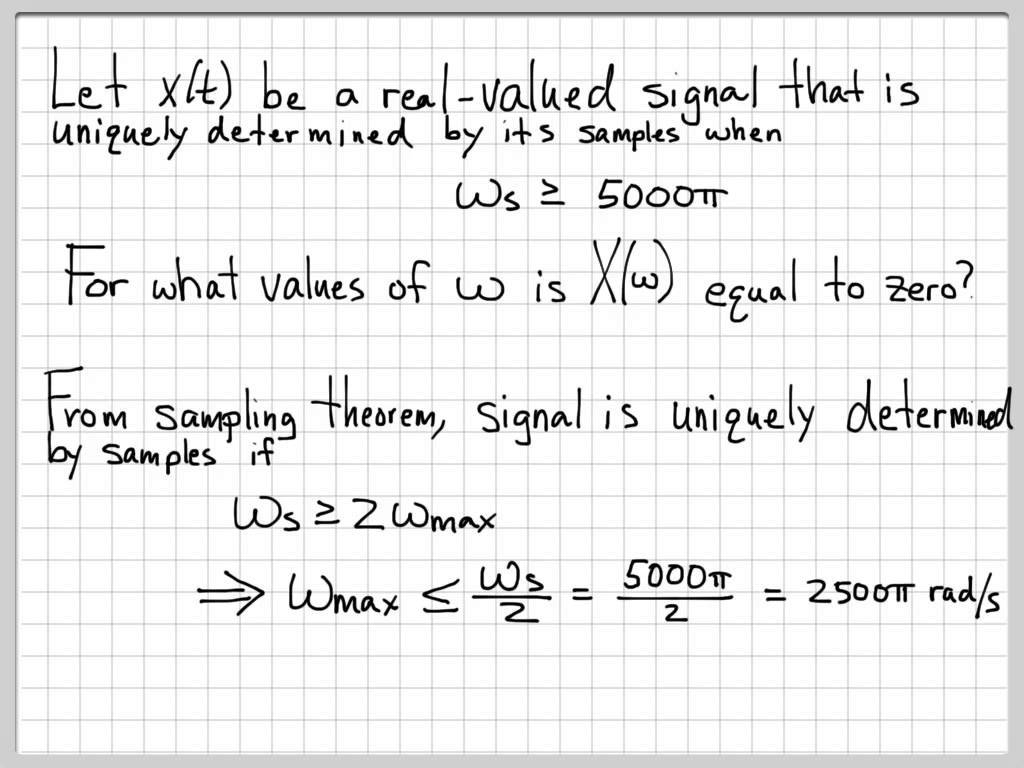 Let x(t) be a real-valued signal that is
uniquely determined by its samples when
ωs ≥ 5000π
For what values of ω is X(ω) equal to zero?
From sampling theorem, signal is uniquely determined
by samples if
ωs ≥ 2ωmax
⇒ ωmax ≤ ωs/2 = 5000π/2 = 2500π rad/s